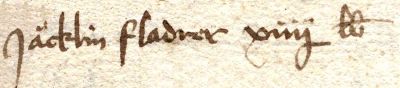 Jäcklin fladrer xiiij lb